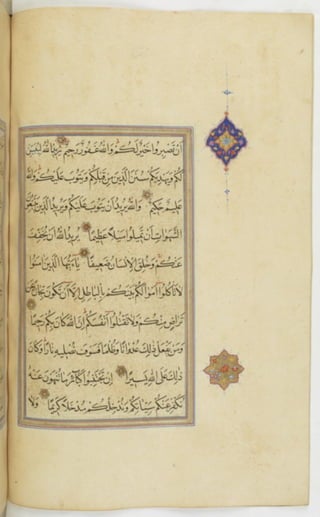 ان تصبروا خير لكم والله غفور رحيم يريد الله ليبين
لكم ويهديكم سنن الذين من قبلكم ويتوب عليكم والله
عليم حكيم والله يريد ان يتوب عليكم ويريد الذين يتبعون
الشهوات ان تميلوا ميلا عظيما يريد الله ان يخفف
عنكم وخلق الانسان ضعيفا ياءيها الذين امنوا
لا تاكلوا اموالكم بينكم بالباطل الا ان تكون تجارة عن
تراض منكم ولا تقتلوا انفسكم ان الله كان بكم رحيما
ومن يفعل ذلك عدوانا وظلما فسوف نصليه نارا وكان
ذلك على الله يسيرا ان تجتنبوا كبائر ما تنهون عنه
نكفر عنكم سيئاتكم وندخلكم مدخلا كريما ولا